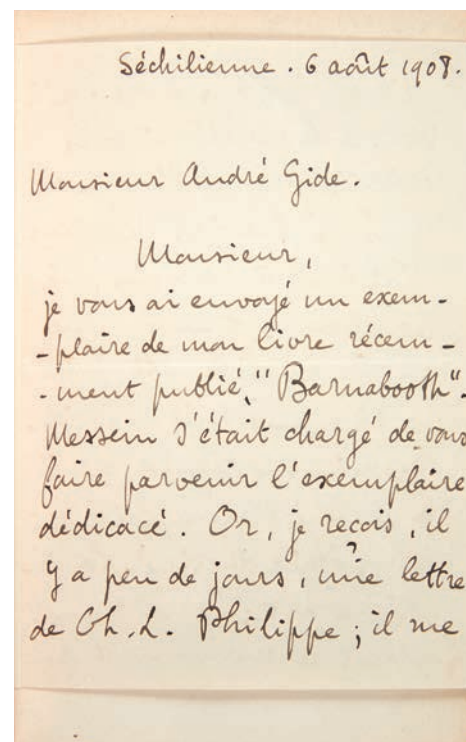 Séchilienne. 6 août 1908.
Monsieur André Gide.
Monsieur,
je vous ai envoyé un exem-
-plaire de mon livre récem-
-ment publié, "Barnabooth".
Messein s'était chargé de vous
faire parvenir l'exemplaire
dédicacé. Or, je recois, il
y a peu de jours, une lettre
de Ch. L. Philippe ; il me